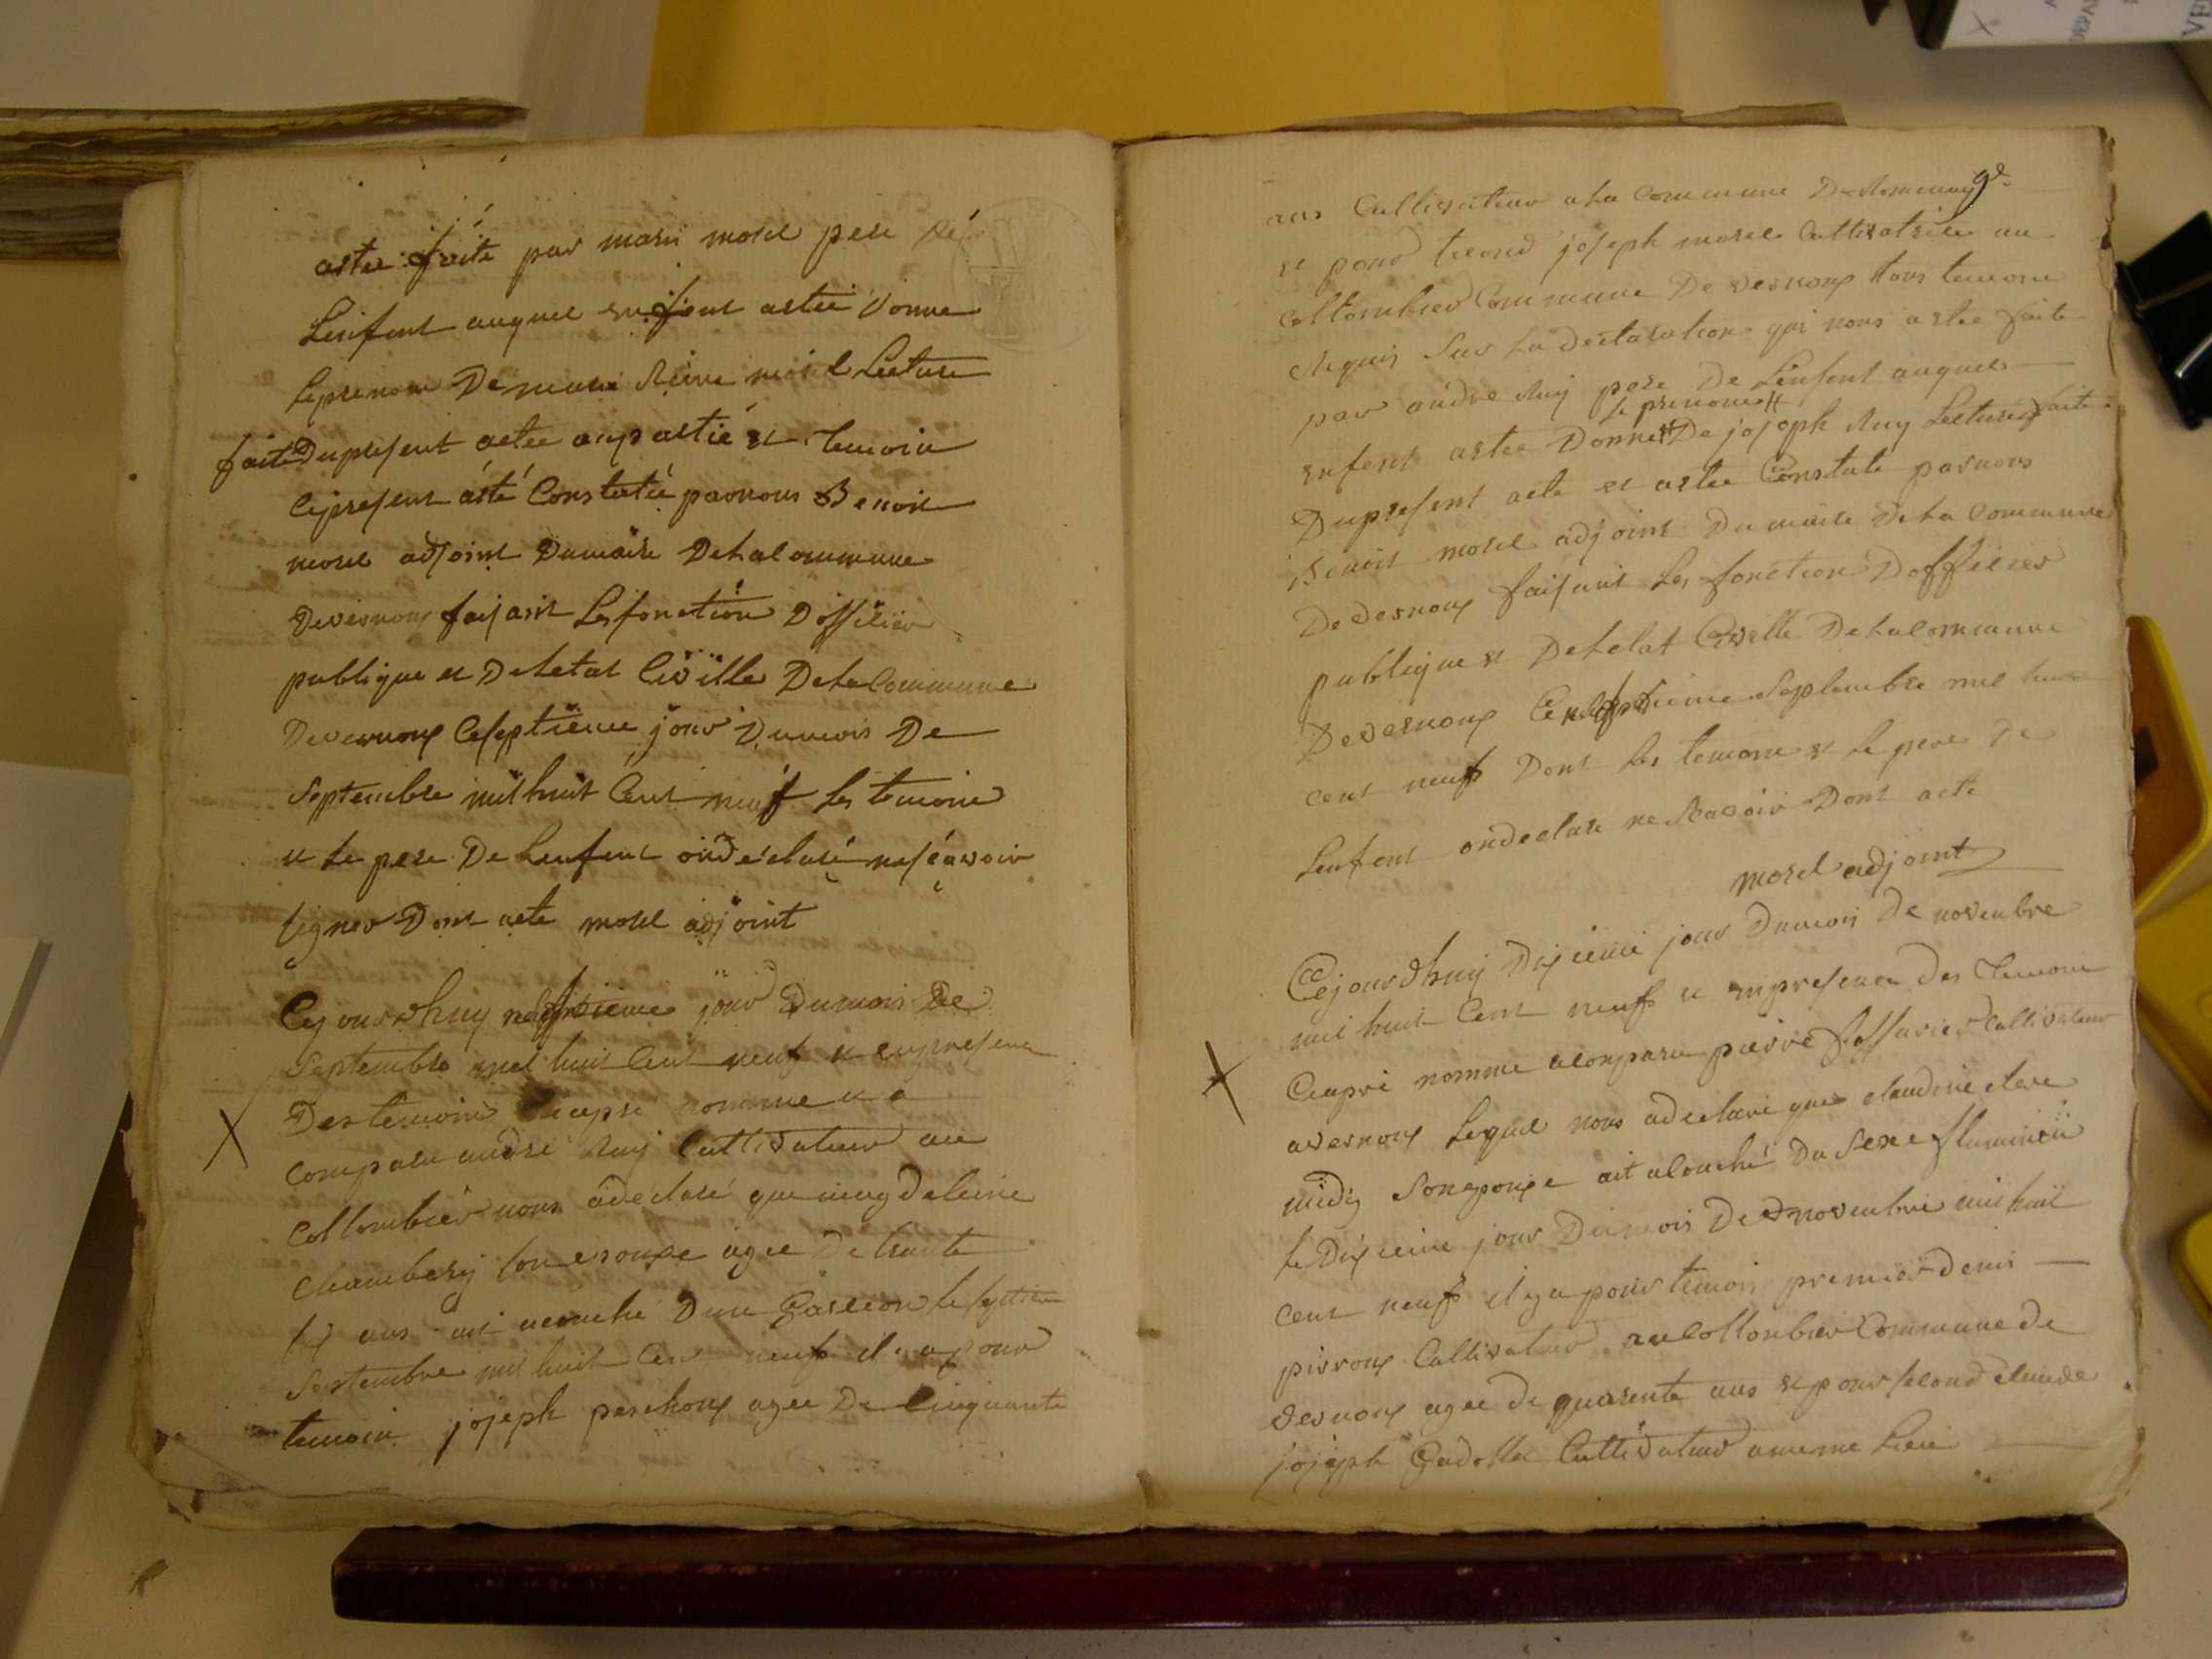 astee faite par marii morel pere dé
Lenfent auquel enfent astée donne
Leprenom De marie Reine morel Lecture
faite Dupresent actee aup astié et Temoin
Cepresent aété Constatée parnous Benoit
morel adjoint Dumaire Delacommune
Devernoux faisant Lesfonction Dofficier
publique et Deletat Civille Delacommune
Devernoux Ceseptieme jour Dumois De
Septembre mil huit Cent neuf les temoin
et le pere De Lenfent ondéclaré nesçavoir
signer Dont acte morel adjoint
Cejourdhuy jour Dumois De
Septembre mil huit Cent neuf et enpresence
Destemoin Ciapre nomme et a
comparu andre Ruy Cultivateur au
Collombier nous adéclaré que magdeleine
Chambery son epouse agee De trante
ans ait acouché Dun Garceon le septieme
Septembre mil huit Cent neuf il y a pour
temoin joseph perchoux agee De Cinquante
ans Cultivateur ala Commune De Romenay
et pour second joseph morel Cultivatrice au
Collombier Commune De vernoux tous temoin
Requis Sur La Declaration qui nous astee faite
par andre Ruy pere De Lenfent auquel
le prenom #
enfent astee Donne # De joseph Ruy Lecture faite
Dupresent acte et astee Constate parnous
Benoit morel adjoint Dumaire Dela Commune
De vernoux faisant Les fonction Dofficier
publique et Deletat Civille Delacommune
Devernoux Ce Septembre mil huit
cent neuf Dont les temoin et le pere De
Lenfent ondeclare ne Scavoir Dont acte
morel adjoint
Cejourdhuy Dixieme jour Dumois De novembre
mil huit Cent neuf et enpresence Des Temoin
X
Ciapré nomme acomparu pierre Cultivateur
avernoux Lequel nous adeclaré que claudine clere
midy Sonepouse ait acouché Du Sexe
le Dixieme jour Dumois De novembre mil huit
Cent neuf il y a pour temoin premier denis
pirroux Cultivateur aucollonbier Commune de
vernoux agee de quarente ans et pour second claude
joseph Cultivateur aumeme Lieu
X